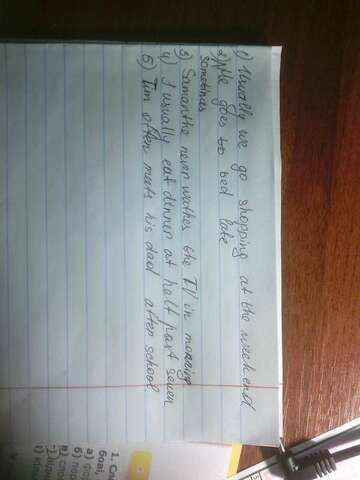 1) Usually we go shopping at the week end
2) goes to bed late
sometimes
3) Samantha never wathes the TV in morning
4) I usually eat dinner at helf part seven
5) Tim often meets his dad after school
бові,